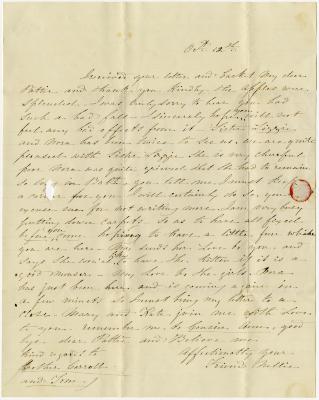 Oct. 12th
I received your letter and basket my dear
Pattie and thank you kindly the apples were
splendid. I was truly sorry to hear you had
such a bad fall I sincerely hope you will not
feel any bad effects from it
and Nora has been twice to see us, we are quite
pleased with she is very cheerful
poor Nora was quite that she had to remain
so long in Bath you tell me I must
for you I will certainly do so, you must
excuse me for not writing more I am very busy
putting down carpets so as to have all fixed
when you come to have a little fun while
you are here sends her Love to you, and
says she will have the Kitten if it is a
good mouser - My Love to the girls. Nora
has just been here and is coming again in
a few minutes so I must bring my letter to a
close. Mary and Kate join me with Love
to you remember me to Cousin good
bye dear Pattie and Believe me
kind regards to Affectionately your
Carroll Friend Nellie
and Jim